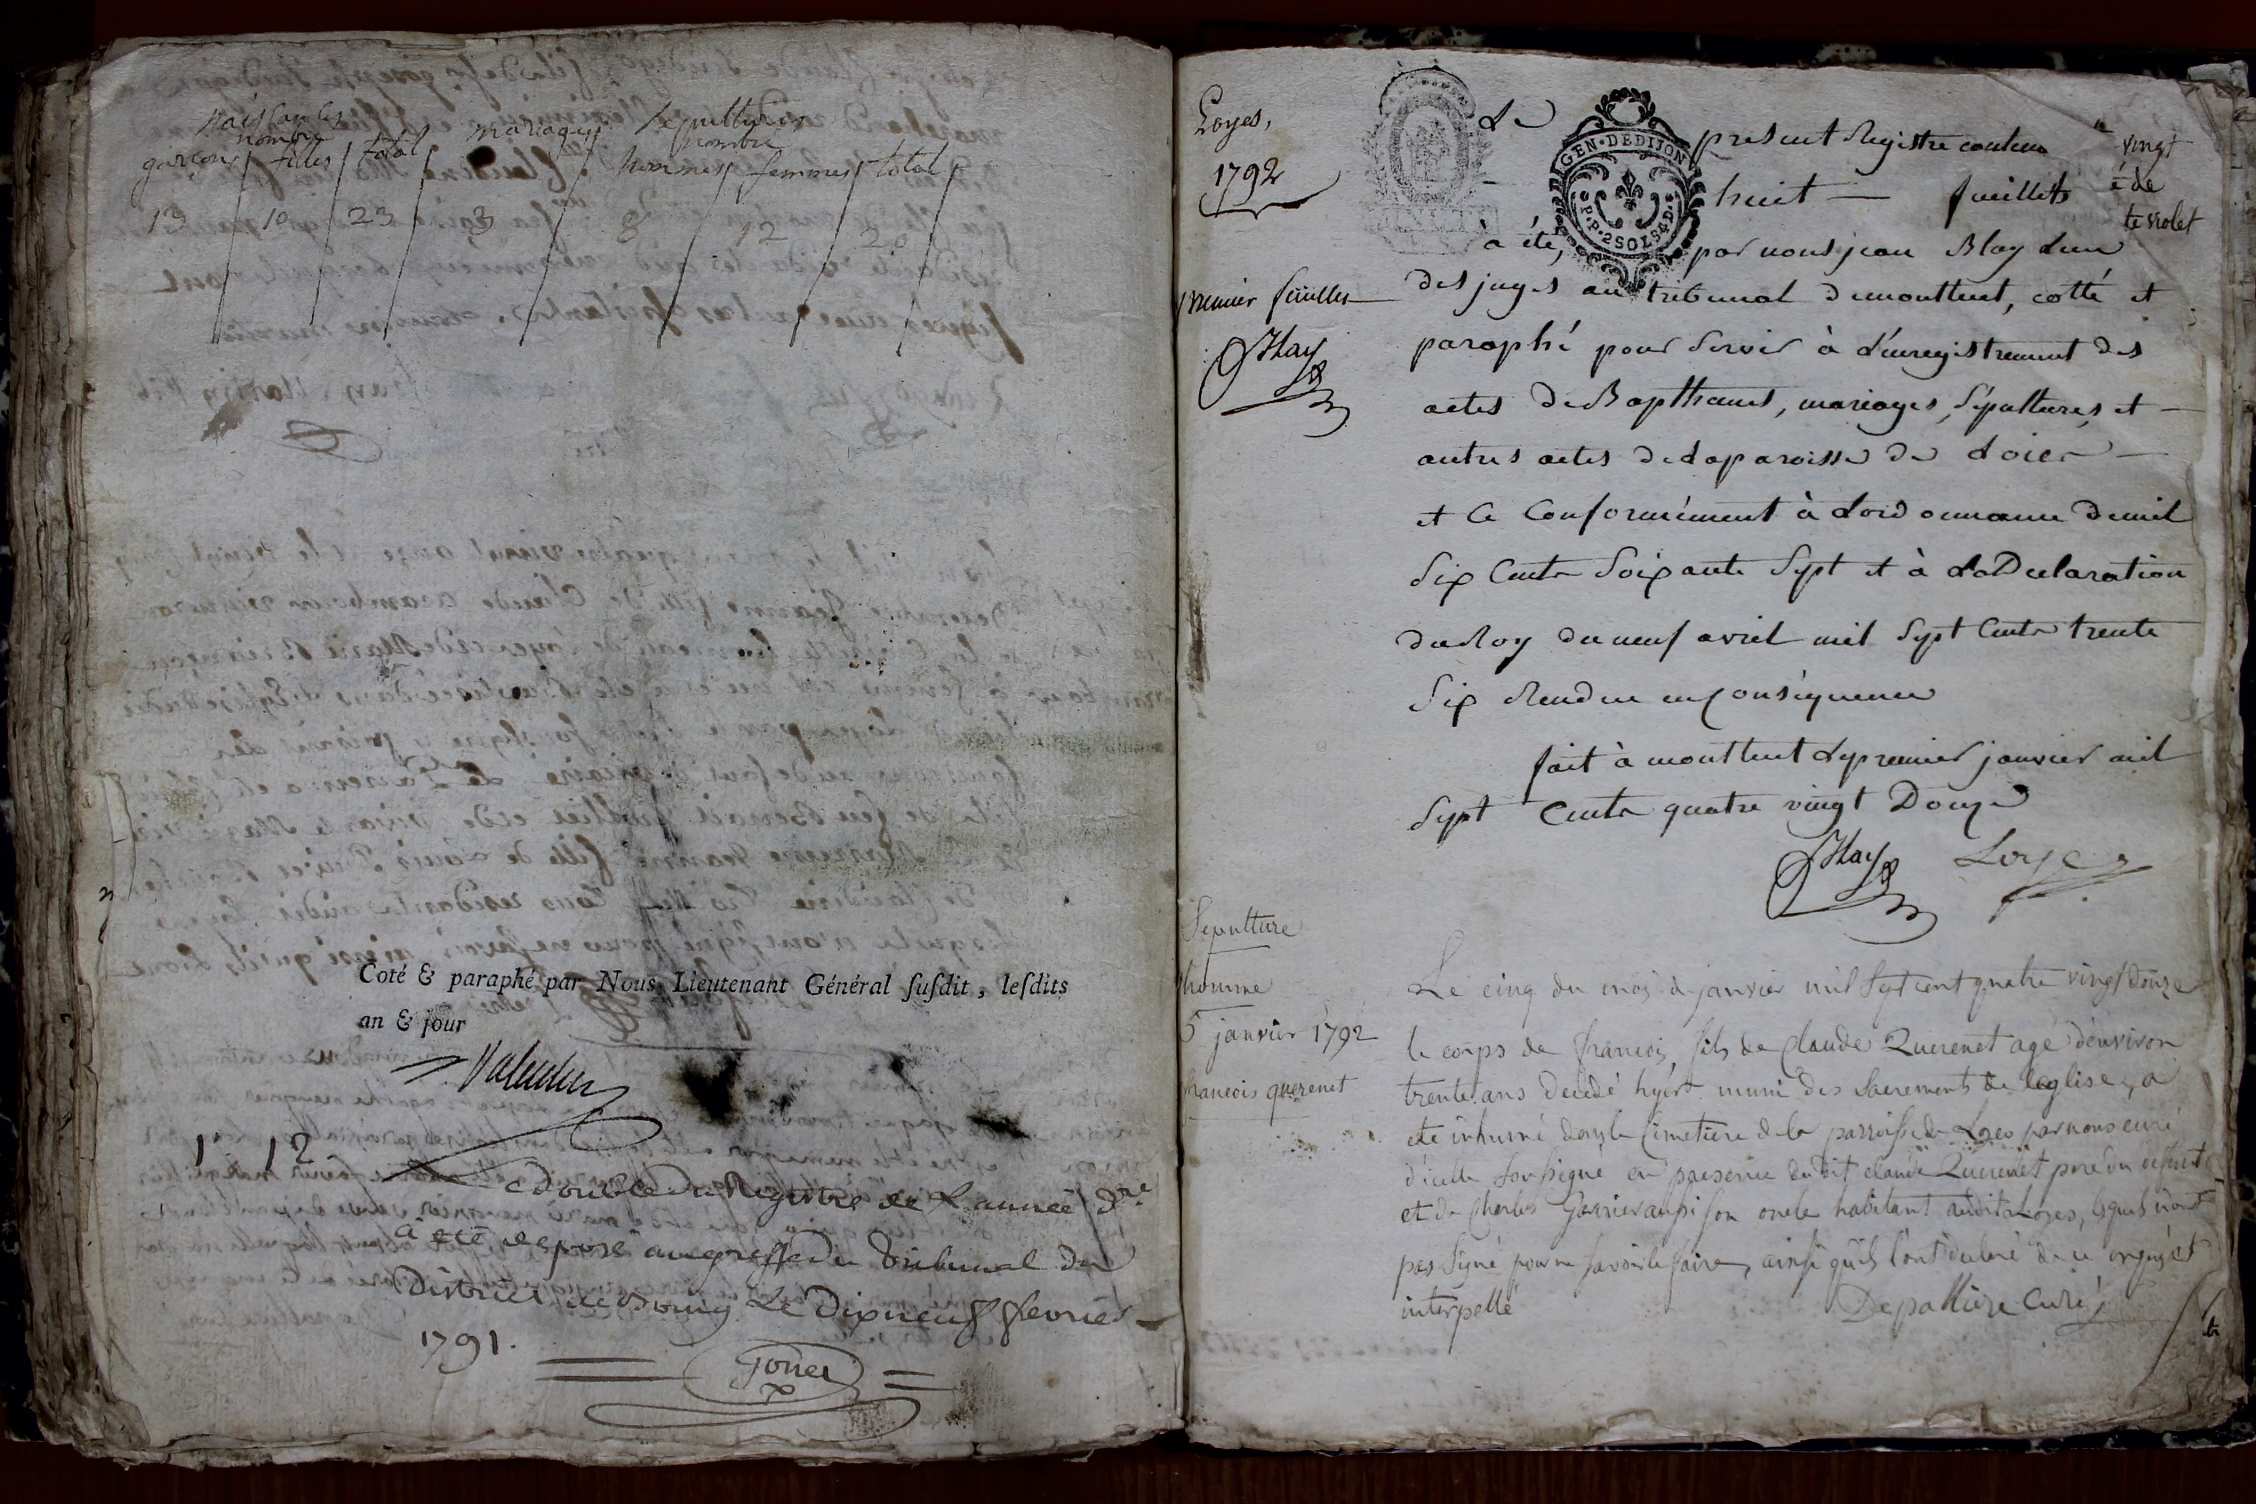 naissances
nombre mariages sepultures
nombre
garçons filles total hommes femmes total
13 10 23 3 8 12 20
Coté & paraphé par Nous, Lieutenant Général ſuſdit, leſdits
an & jour
1 12
double du Registre de L'année dre
a été deposé au greffe du tribunal du
District de Bourg Le Dixneuf fevrier
1791.
Loyes,
1792
premier feuillet
GEN·DE DIJON
P·P·2 SOLS 4·D·
Le present Registre contenu vingt
huit feuillets
à été, par nous jean Blay L'un
des juges au tribunal de montluel, cotté et
paraphé pour servir à L'enregistrement des
actes de Bapthemes, mariages, Sépultures, et
autres actes de La paroisse de Loier
et ce Conformément à Lordonnance de mil
Six Cents Soixante Sept et à La Declaration
du Roy du neuf avril mil Sept Cents trente
Six Rendue en Conséquence
fait à montluel Le premier janvier mil
Sept Cents quatre vingt Douze
Sepulture
homme
5 janvier 1792
francois querenet
Le cinq du mois de janvier mil Sept cent quatre vingt douze
le corps de francois, fils de Claude Querenet agé d'environ
trente ans decedé hyer muni des Sacrements de leglise, a
ete inhumé dans le Cimetiere de la parroisse de Loyes par nous curé
d'icelle Soussigné en presence dudit claude Querenet pere du defunt
et de Charles Garnier aussi son oncle habitant audit Loyes, lesquels n'ont
pas Signé pour ne savoir le faire, ainsi qu'ils l'ont declaré de ce enquis et
interpellé
Depalliere Curé